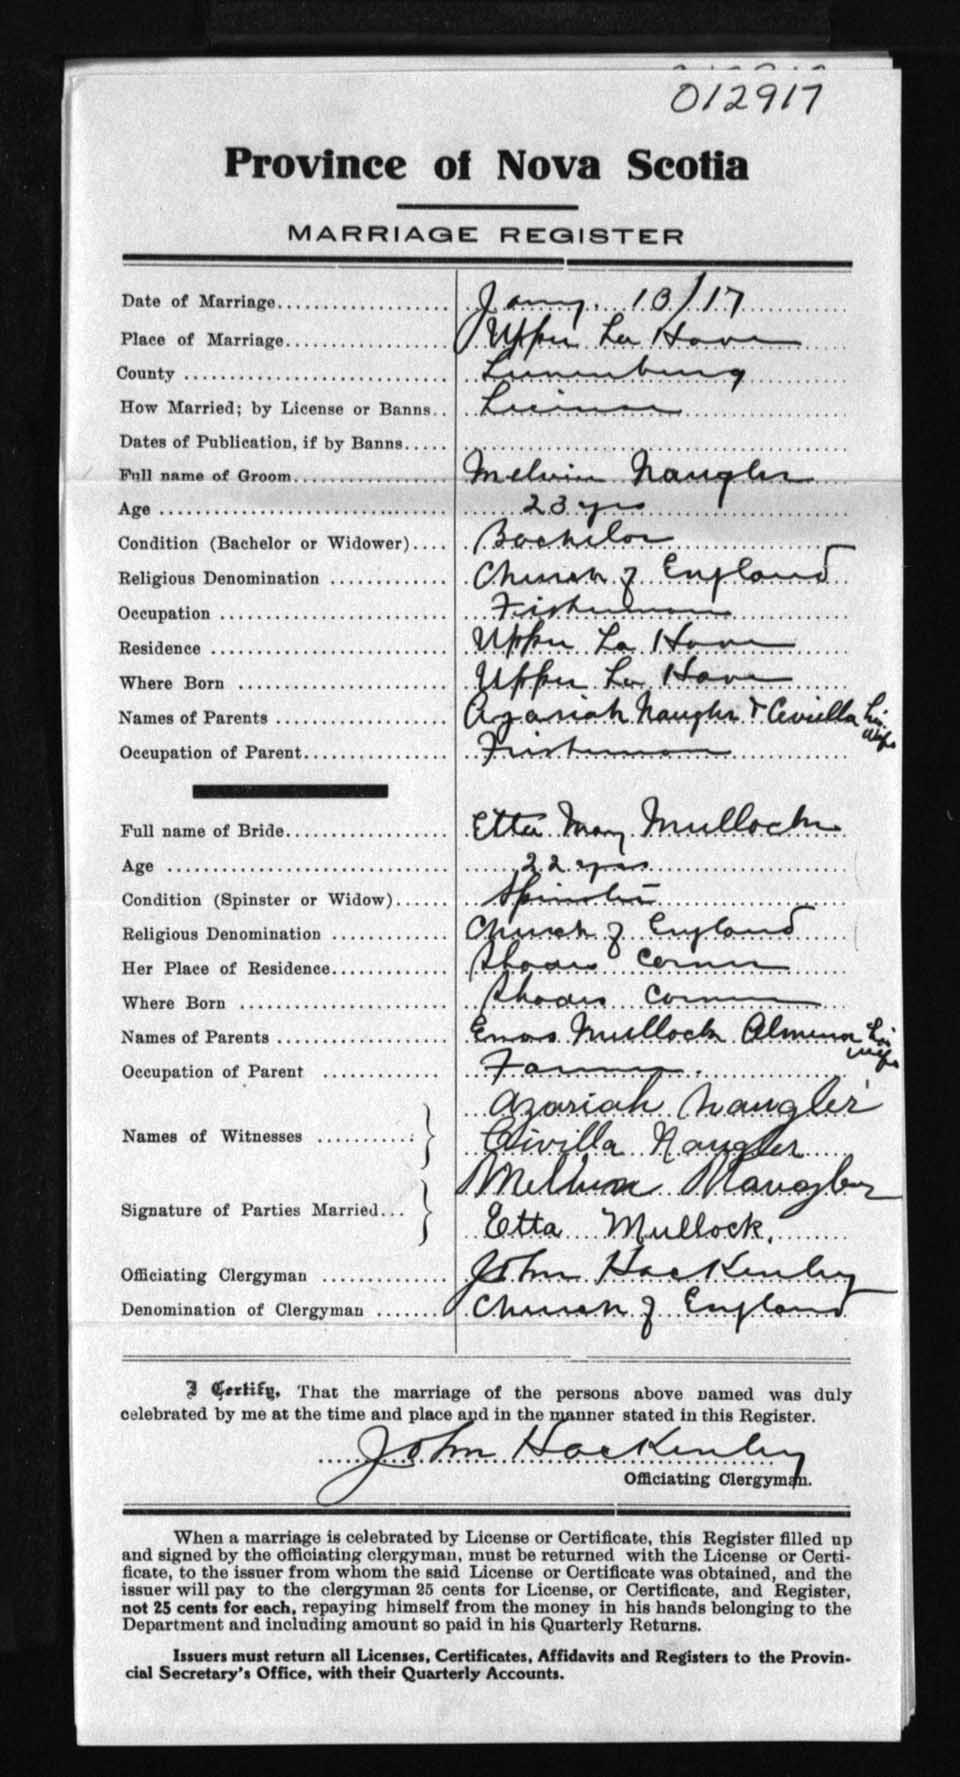 012917
Province of Nova Scotia
MARRIAGE REGISTER
Date of Marriage Jany. 10/17
Place of Marriage Upper La Have
County Lunenburg
How Married; by License or Banns License
Dates of Publication, if by Banns
Full name of Groom Melvin Naugler
Age 23 yrs
Condition (Bachelor or Widower) Bachelor
Religious Denomination Church of England
Occupation Fisherman
Residence Upper La Have
Where Born Upper La Have
Names of Parents Azariah Naugler & Civilla his wife
Occupation of Parent Fisherman
Full name of Bride Etta May Mullock
Age 22 yrs
Condition (Spinster or Widow) Spinster
Religious Denomination Church of England
Her Place of Residence Rhodes Corner
Where Born Rhodes Corner
Names of Parents Enos Mullock Almena his wife
Occupation of Parent Farmer.
Azariah Naugler
Names of Witnesses
Civilla Naugler
Melvin Naugler
Signature of Parties Married
Etta Mullock.
Officiating Clergyman John Hackenley
Denomination of Clergyman Church of England
I Certify, That the marriage of the persons above named was duly
celebrated by me at the time and place and in the manner stated in this Register.
John Hackenley
Officiating Clergyman.
When a marriage is celebrated by License or Certificate, this Register filled up
and signed by the officiating clergyman, must be returned with the License or Certi-
ficate, to the issuer from whom the said License or Certificate was obtained, and the
issuer will pay to the clergyman 25 cents for License, or Certificate, and Register,
not 25 cents for each, repaying himself from the money in his hands belonging to the
Department and including amount so paid in his Quarterly Returns.
Issuers must return all Licenses, Certificates, Affidavits and Registers to the Provin-
cial Secretary's Office, with their Quarterly Accounts.